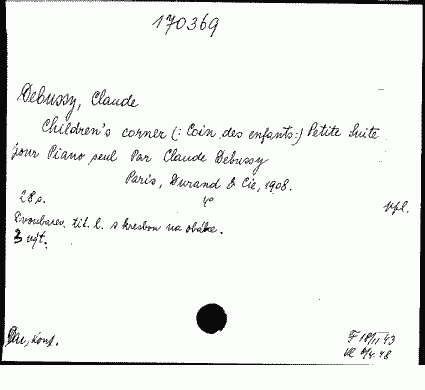 170369
Debussy, Claude
Children's corner (: Coin des enfants:) Petite Suite
pour Piano seul Par Claude Debussy
Paris, Durand & Cie, 1908.
28 s. 4°
vpl.
Dvoubarev. tit. l. s kresbou na obálce.
3 výt.
F 18/II 43